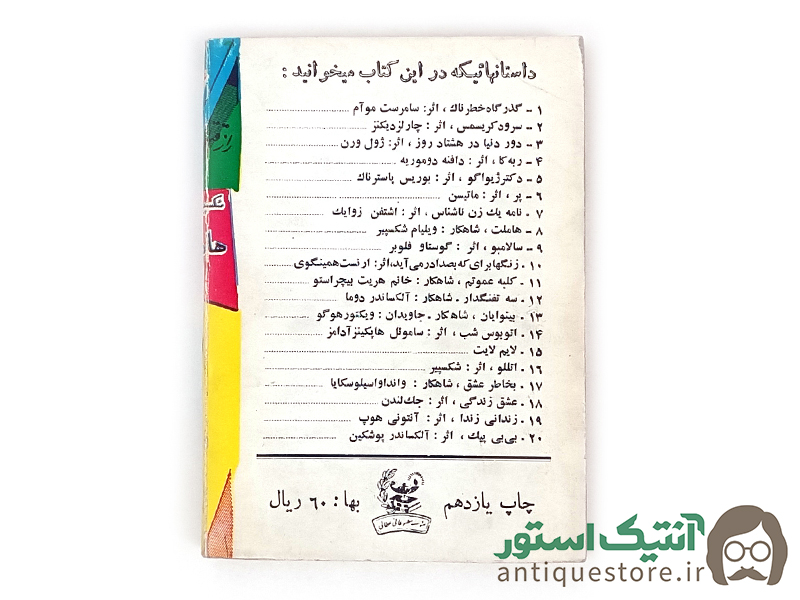 داستانهائیکه در این کتاب میخوانید :
۱ - گذرگاه خطرناك ، اثر: سامرست موآم
۲ - سرود کریسمس ، اثر : چارلز دیکنز
۳ - دور دنیا در هشتاد روز ، اثر: ژول ورن
۴ - ربه کا ، اثر : دافنه دوموریه
۵ - دکتر ژیواگو ، اثر : بوریس پاسترناك
۶ - پر ، اثر : ماتیسن
۷ - نامه یك زن ناشناس ، اثر : اشتفن زوایك
۸ - هاملت ، شاهکار : ویلیام شکسپیر
۹ - سالامبو ، اثر : گوستاو فلوبر
۱۰ - زنگها برای که بصدا درمی آید، اثر: ارنست همینگوی
۱۱ - کلبه عموتم ، شاهکار : خانم هریت بیچر استو
۱۲ - سه تفنگدار - شاهکار : آلکساندر دوما
۱۳ - بینوایان ، شاهکار - جاویدان : ویکتور هوگو
۱۴ - اتوبوس شب ، اثر : ساموئل هاپکینز آدامز
۱۵ - لایم لایت
۱۶ - اتللو ، اثر : شکسپیر
۱۷ - بخاطر عشق ، شاهکار : وانداواسیلوسکایا
۱۸ - عشق زندگی ، اثر : جك لندن
۱۹ - زندانی زندا ، اثر : آنتونی هوپ
۲۰ - بی بی پیك ، اثر : آلکساندر پوشکین
چاپ یازدهم بها : ۶۰ ریال
آنتیک استور
antiquestore.ir